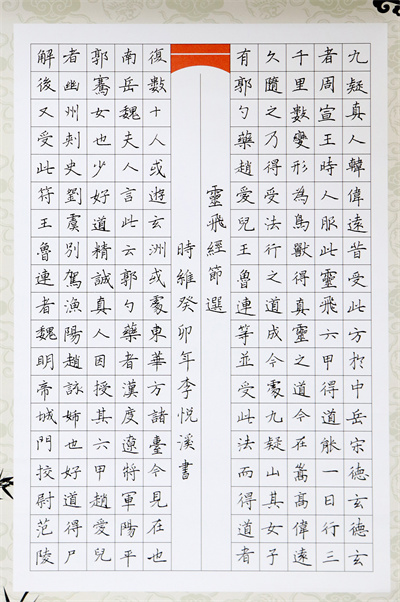 九疑真人韓偉遠昔受此方扵中岳宋德玄德玄
者周宣王時人服此靈飛六甲得道能一日行三
千里數變形為鳥獸得真靈之道今在嵩高偉遠
久隨之乃得受法行之道成今處九疑山其女子
有郭勺藥趙愛兒王魯連等並受此法而得道者
靈飛經節選
時維癸卯年李悅溪書
復數十人或遊玄洲或處東華方諸臺今見在也
南岳魏夫人言此云郭勺藥者漢度遼將軍陽平
郭騫女也少好道精誠真人因授其六甲趙愛兒
者幽州刺史劉虞別駕漁陽趙詠姊也好道得尸
解後又受此符王魯連者魏明帝城門挍尉范陵